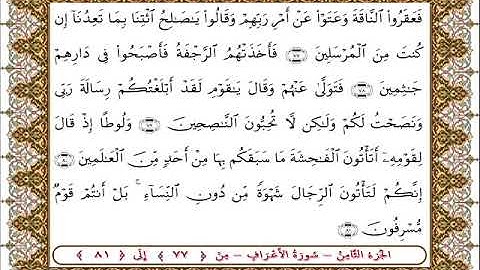 فَعَقَرُوا۟ ٱلنَّاقَةَ وَعَتَوْا۟ عَنْ أَمْرِ رَبِّهِمْ وَقَالُوا۟ يَـٰصَـٰلِحُ ٱئْتِنَا بِمَا تَعِدُنَآ إِن
كُنتَ مِنَ ٱلْمُرْسَلِينَ ﴿٧٧﴾ فَأَخَذَتْهُمُ ٱلرَّجْفَةُ فَأَصْبَحُوا۟ فِى دَارِهِمْ
جَـٰثِمِينَ ﴿٧٨﴾ فَتَوَلَّىٰ عَنْهُمْ وَقَالَ يَـٰقَوْمِ لَقَدْ أَبْلَغْتُكُمْ رِسَالَةَ رَبِّى
وَنَصَحْتُ لَكُمْ وَلَـٰكِن لَّا تُحِبُّونَ ٱلنَّـٰصِحِينَ ﴿٧٩﴾ وَلُوطًا إِذْ قَالَ
لِقَوْمِهِۦٓ أَتَأْتُونَ ٱلْفَـٰحِشَةَ مَا سَبَقَكُم بِهَا مِنْ أَحَدٍ مِّنَ ٱلْعَـٰلَمِينَ ﴿٨٠﴾
إِنَّكُمْ لَتَأْتُونَ ٱلرِّجَالَ شَهْوَةً مِّن دُونِ ٱلنِّسَآءِ ۚ بَلْ أَنتُمْ قَوْمٌ
مُّسْرِفُونَ ﴿٨١﴾
الجزء الثَّامِنُ - سُورَةُ الأَعْرَافِ - مِنْ ﴿٧٧﴾ إِلَى ﴿٨١﴾